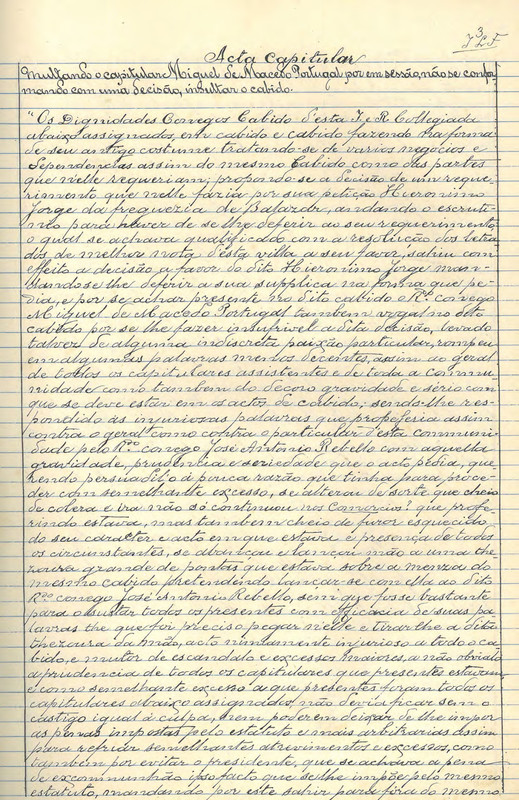 3
Acta Capitular
Multando o capitular Miguel de Macedo Portugal, por em sessão, não se confor-
mando com uma decisão, insultar o cabido.
"Os Dignidades Conegos Cabido d'esta I. e R. Collegiada
abaixo assignados, em cabido e cabido fazendo na forma
de seu antigo costume tratando-se de varios negocios e
dependencias assim do mesmo Cabido como das partes
que nelle requeriam; propondo-se a decisão de um reque-
rimento que nelle fazia por sua petição Hieronimo
Jorge da freguezia de Balazar, andando o escruti-
nio para haver de se lhe deferir ao seu requerimento,
o qual se achava qualificado com a resolução dos letra-
dos de melhor nota d'esta villa a seu favor, sahiu com
effeito a decisão a favor do dito Hieronimo Jorge man-
dando-se lhe deferir a sua supplica na forma que pe-
dia, e por se achar presente no dito cabido o Rdo. conego
Miguel de Macedo Portugal tambem vogal no dito
cabido por se lhe fazer insufrivel a dita decisão, levado
talvez de alguma indiscreta paixão particular, rompeu
em algumas palavras menos decentes, assim ao geral
de todos os capitulares assistentes e de toda a commu-
nidade como tambem do decoro gravidade e serio com
que se deve estar em os actos de cabido; sendo-lhe res-
pondido ás injuriosas palavras que proferia assim
contra o geral como contra o particular d'esta communi-
dade pelo Rdo. conego José Antonio Rebello com aquella
gravidade, prudencia e seriedade que o acto pedia, que-
rendo persuadil-o á pouca razão que tinha para proce-
der com semelhante excesso, se alterou de sorte que cheio
de colera e ira não só continuou nos que profe-
rindo estava, mas tambem cheio de furor esquecido
do seu caracter e acto em que estava e presença de todos
os circunstantes, se abançou e lançou mão a uma the-
zoura grande de pontas que estava sobre a menza do
mesmo cabido pretendendo lançar-se com ella ao dito
Rdo. conego José Antonio Rebello, sem que fosse bastante
para o sustar todos os presentes com efficacia de suas pa-
lavras the que foi preciso pegar nelle e tirar lhe a dita
thezoura da mão, acto nimiamente injurioso a todo o ca-
bido, e motor de escandalo e excessos maiores, a não obviar
a prudencia de todos os capitulares que presentes estavam
e como semelhante excesso a que presentes foram todos os
capitulares abaixo assignados, não devia ficar sem o
castigo igual á culpa, nem poderem deixar de lhe impor
as penas impostas pelo estatuto e mais arbitrarias assim
para refriar semelhantes atrevimentos e excessos, como
tambem por evitar o presidente, que se achava a pena
de excommunhão ipso facto que se lhe impõe pelo mesmo
estatuto, mandando por este sahir para fóra do mesmo